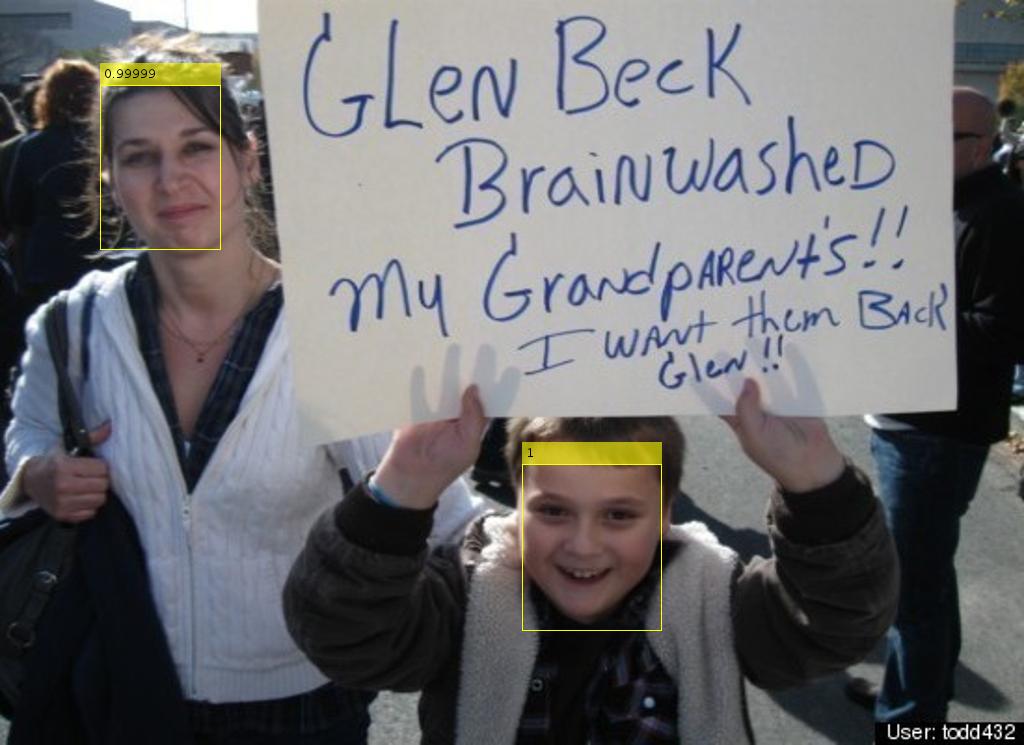 0.99999
GLen Beck
BrainwasheD
My GrandpARENt's!!
I WANt them BAck
Glen!!
1
User: todd432